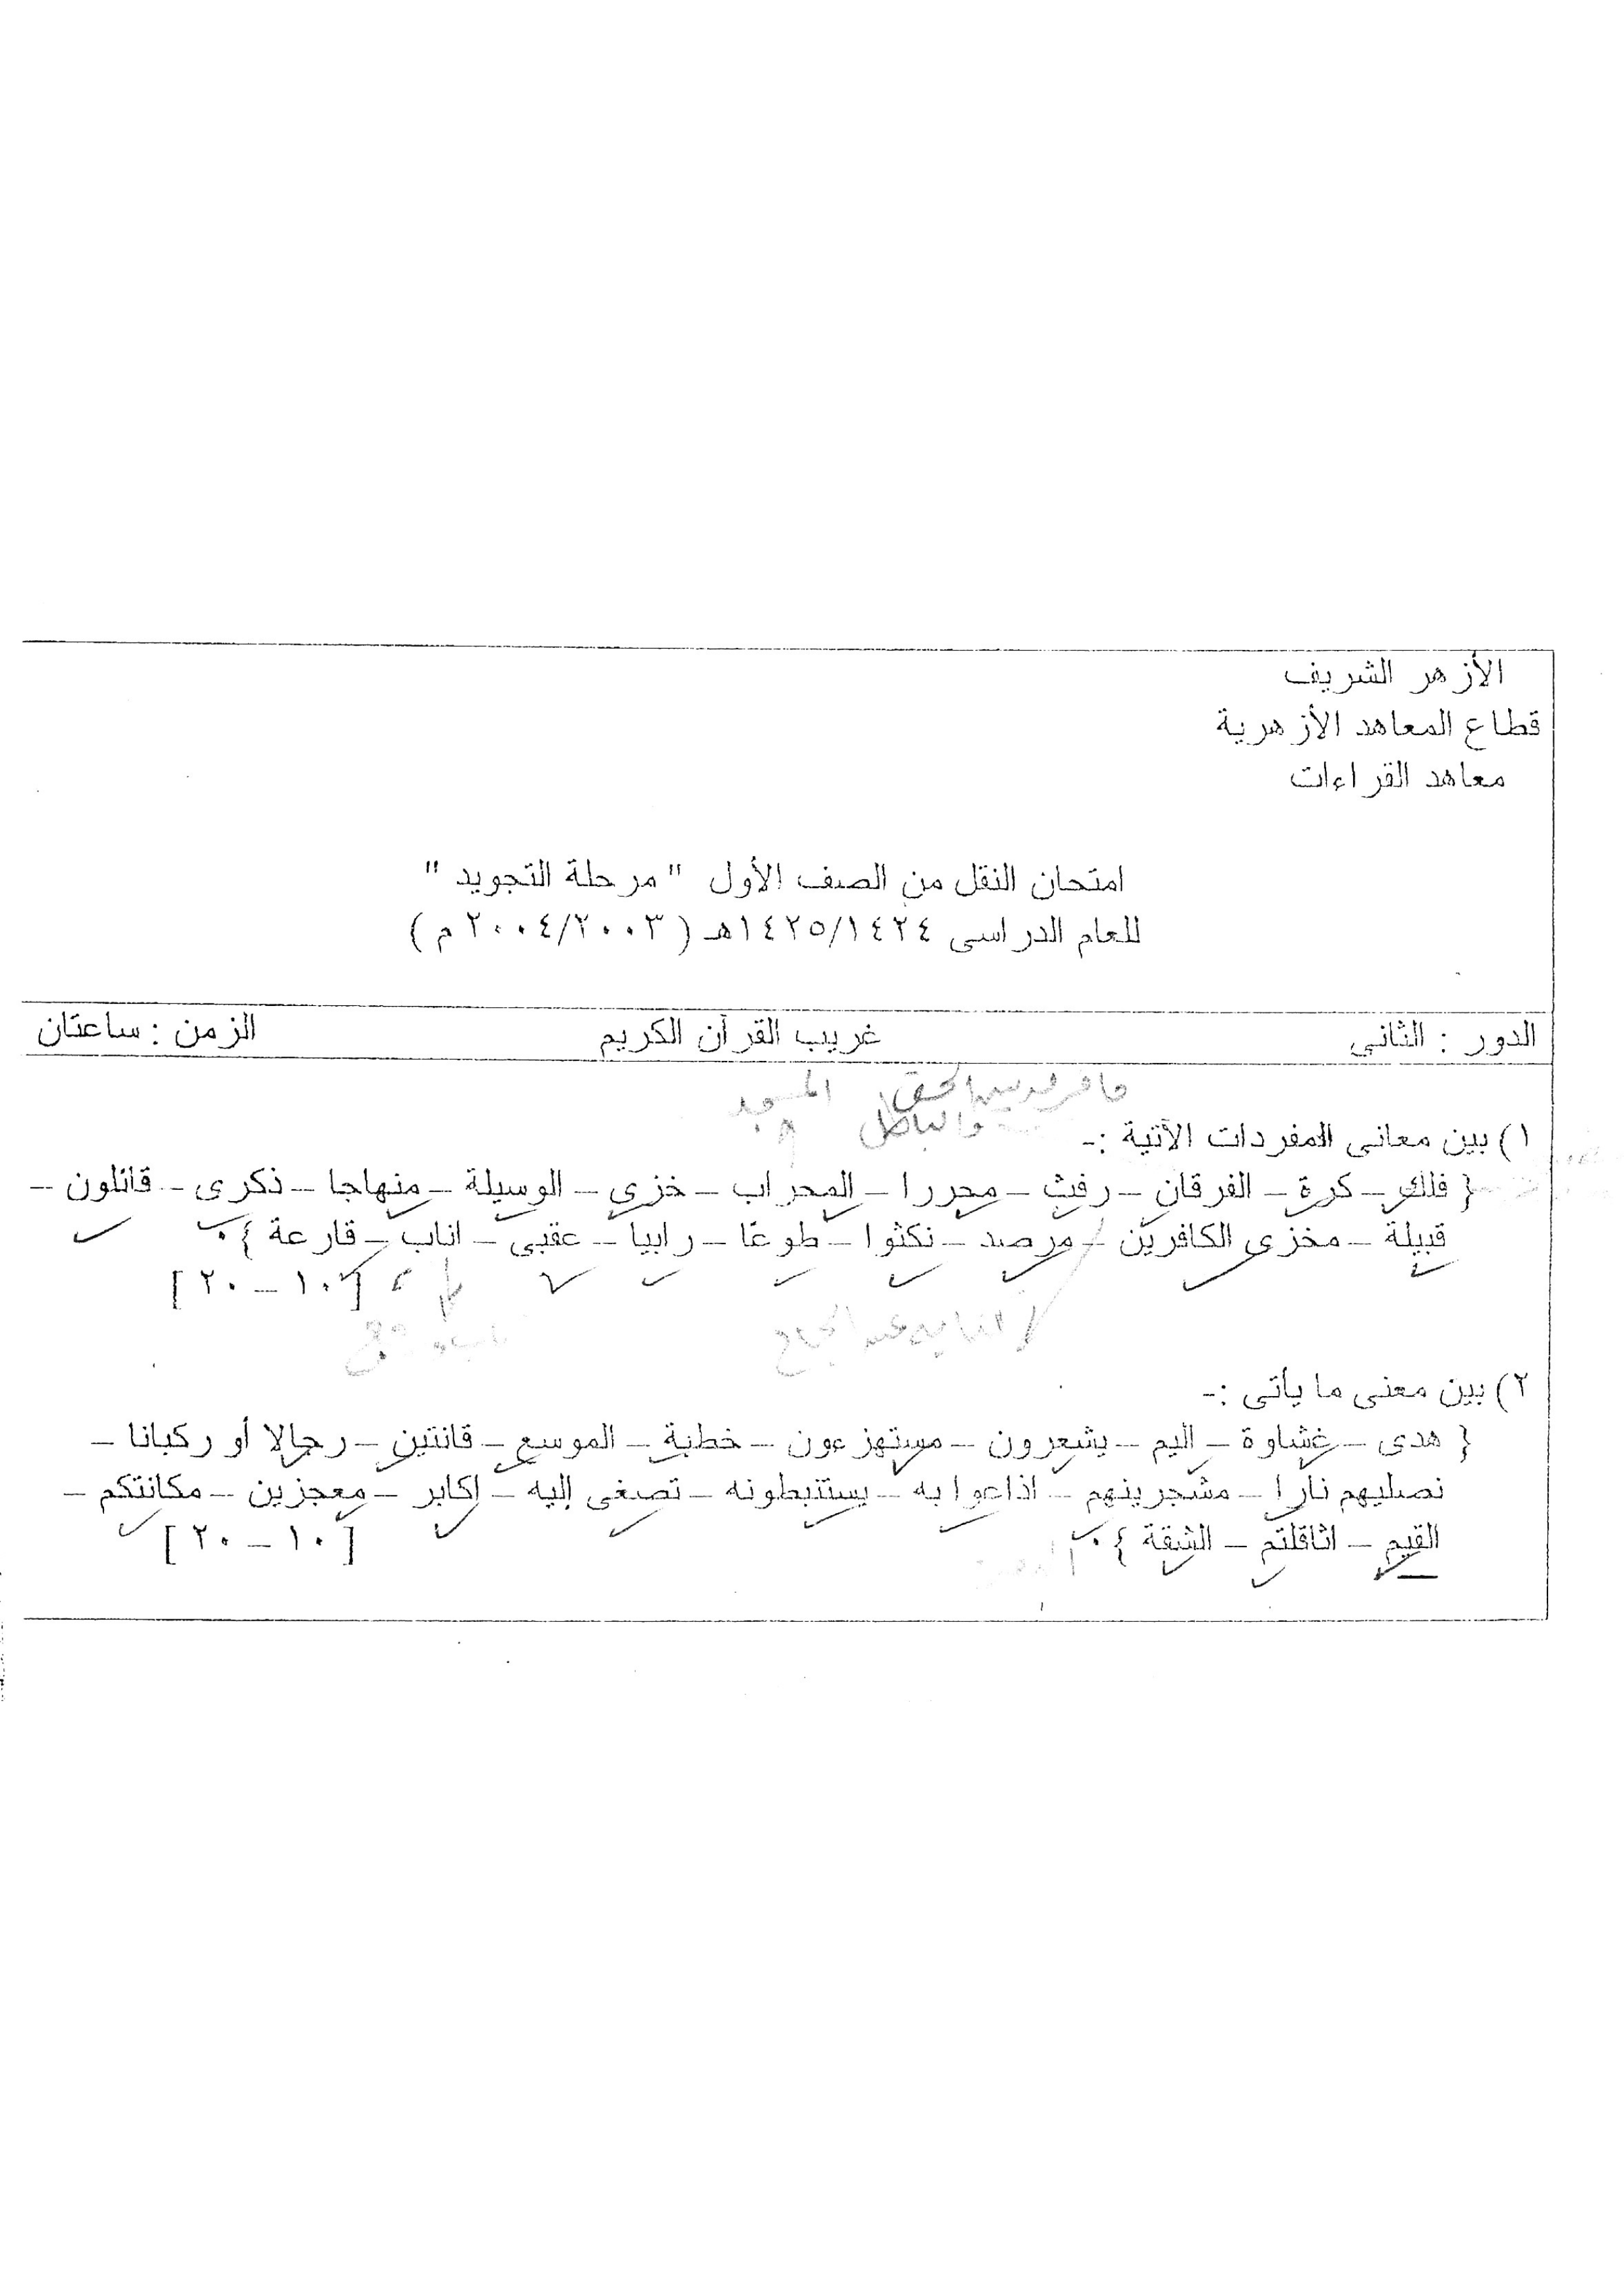 الأزهر الشريف
قطاع المعاهد الأزهرية
معاهد القراءات
امتحان النقل من الصف الأول " مرحلة التجويد "
للعام الدراسى ١٤٢٥/١٤٢٤هـ ( ٢٠٠٤/٢٠٠٣ م )
الدور : الثاني غريب القرآن الكريم الزمن : ساعتان
والباطل
١) بين معانى المفردات الآتية :-
{ فلك – كرة – الفرقان – رفث – محررا – المحراب – خزي – الوسيلة – منهاجا – ذكرى – قائلون –
قبيلة – مخزى الكافرين – مرصد – نكثوا – طوعًا – رابيا – عقبى – اناب – قارعة } .
[ ١٠ – ٢٠ ]
٢) بين معنى ما يأتى :-
{ هدى – غشاوة – اليم – يشعرون – مستهزءون – خطبة – الموسع – قانتين – رجالا أو ركبانا –
نصليهم نارا – مشجرينهم – اذاعوا به – يستنبطونه – تصغى إليه – اكابر – معجزين – مكانتكم –
القيم – اثاقلتم – الشقة } . [ ١٠ – ٢٠ ]